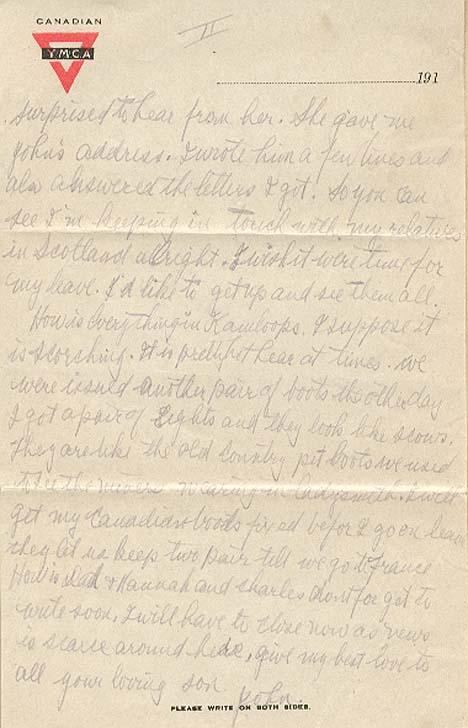 CANADIAN
YMCA
II
191
surprised to hear from her. She gave me
John's address. I wrote him a few lines and
also answered the letters I got. So you can
see I'm keeping in touch with my relatives
in Scotland allright. I wish it were time for
my leave. I'd like to get up and see them all.
How is everything in Kamloops. I suppose it
is scorching. It is pretty hot hear at times. we
were issued another pair of boots the other day
I got a pair of Eights and they look like scows.
They are like the old Country pit boots we used
to see the miners wearing in Ladysmith. I will
get my Canadian boots fixed befor I go on leave
they let us keep two pair till we go to France
How is Dad & Hannah and Charles dont forget to
write soon. I will have to close now as news
is scarce around here, give my best love to
all your loving son John.
PLEASE WRITE ON BOTH SIDES.